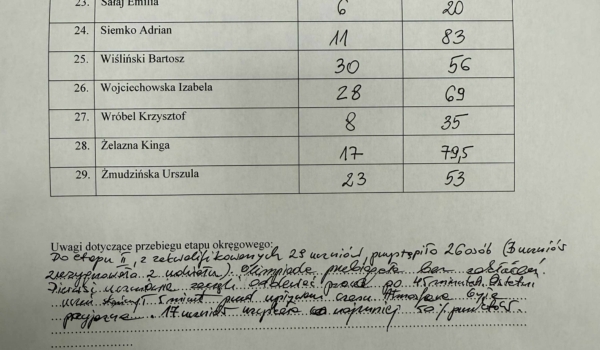 23. Sałaj Emilia 6 20
24. Siemko Adrian 11 83
25. Wiśliński Bartosz 30 56
26. Wojciechowska Izabela 28 69
27. Wróbel Krzysztof 8 35
28. Żelazna Kinga 17 79,5
29. Żmudzińska Urszula 23 53
Uwagi dotyczące przebiegu etapu okręgowego:
Do etapu II, z zakwalifikowanych 29 uczniów, przystąpiło 26 osób (3 uczniów
zrezygnowało z udziału). Olimpiada przebiegła bez zakłóceń.
Pierwsi uczniowie zaczęli oddawać prace po 45 minutach. Ostatni
uczeń skończył 5 minut przed upływem czasu. Atmosfera była
przyjazna. 17 uczniów uzyskało co najmniej 50% punktów.